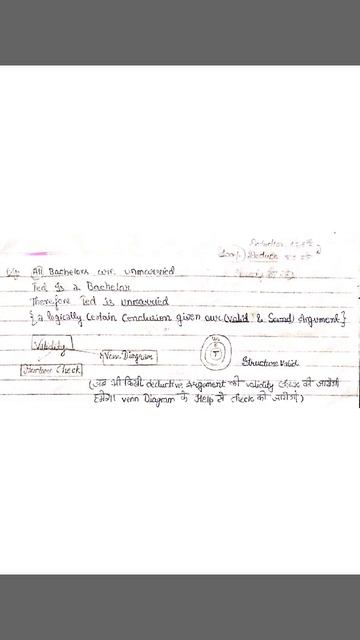 Deduce
Eg All Bachelors are unmarried
Ted is a Bachelor
Therefore Ted is unmarried
{a logically certain conclusion given our (valid & sound) argument}
Validity
Venn Diagram
T
Structure Valid
Check
(जब भी किसी deductive argument की validity check की जायेगी
हमेशा venn Diagram के Help से check की जायेगी)